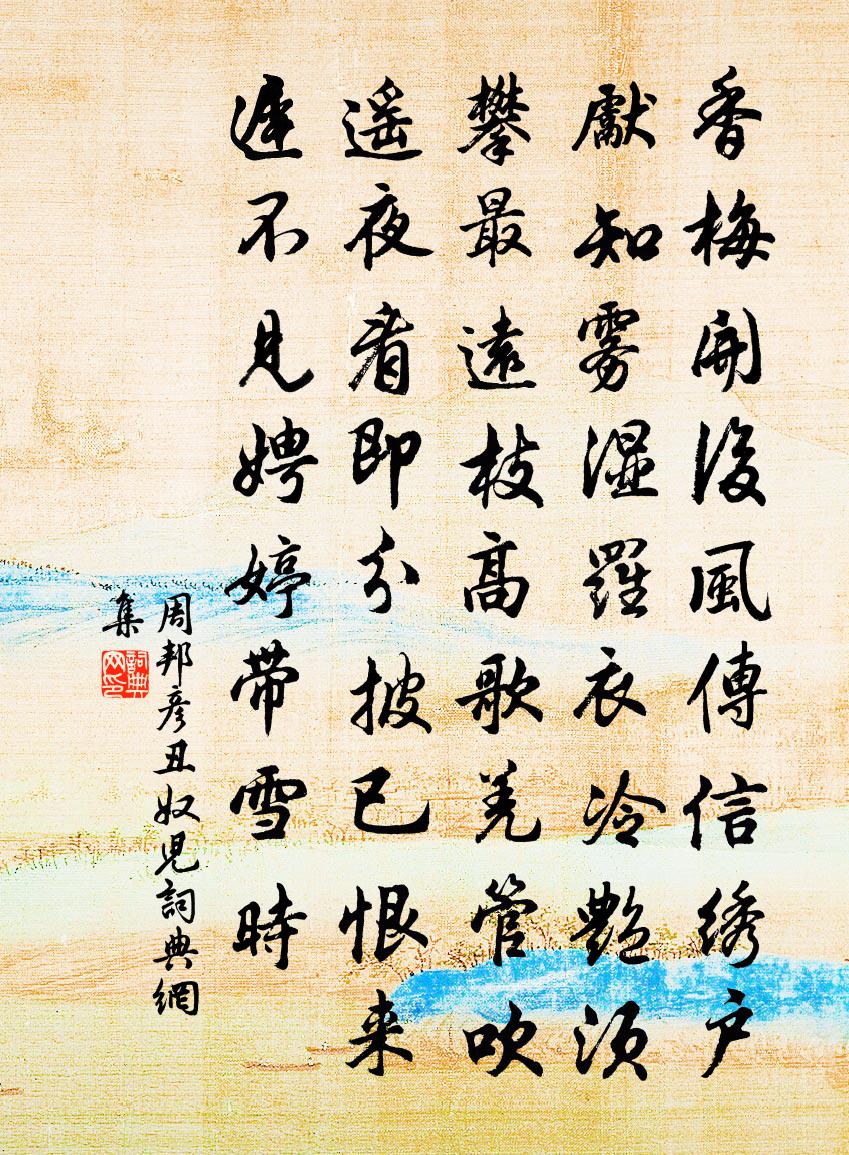 香梅開後風傳信綉户
獻知霧湿羅衣冷艷須
攀最遠枝高歌羌管吹
遥夜看即分披已恨来
遲不見娉婷带雪時
周邦彦丑奴兒詞典網
集
詞典网印